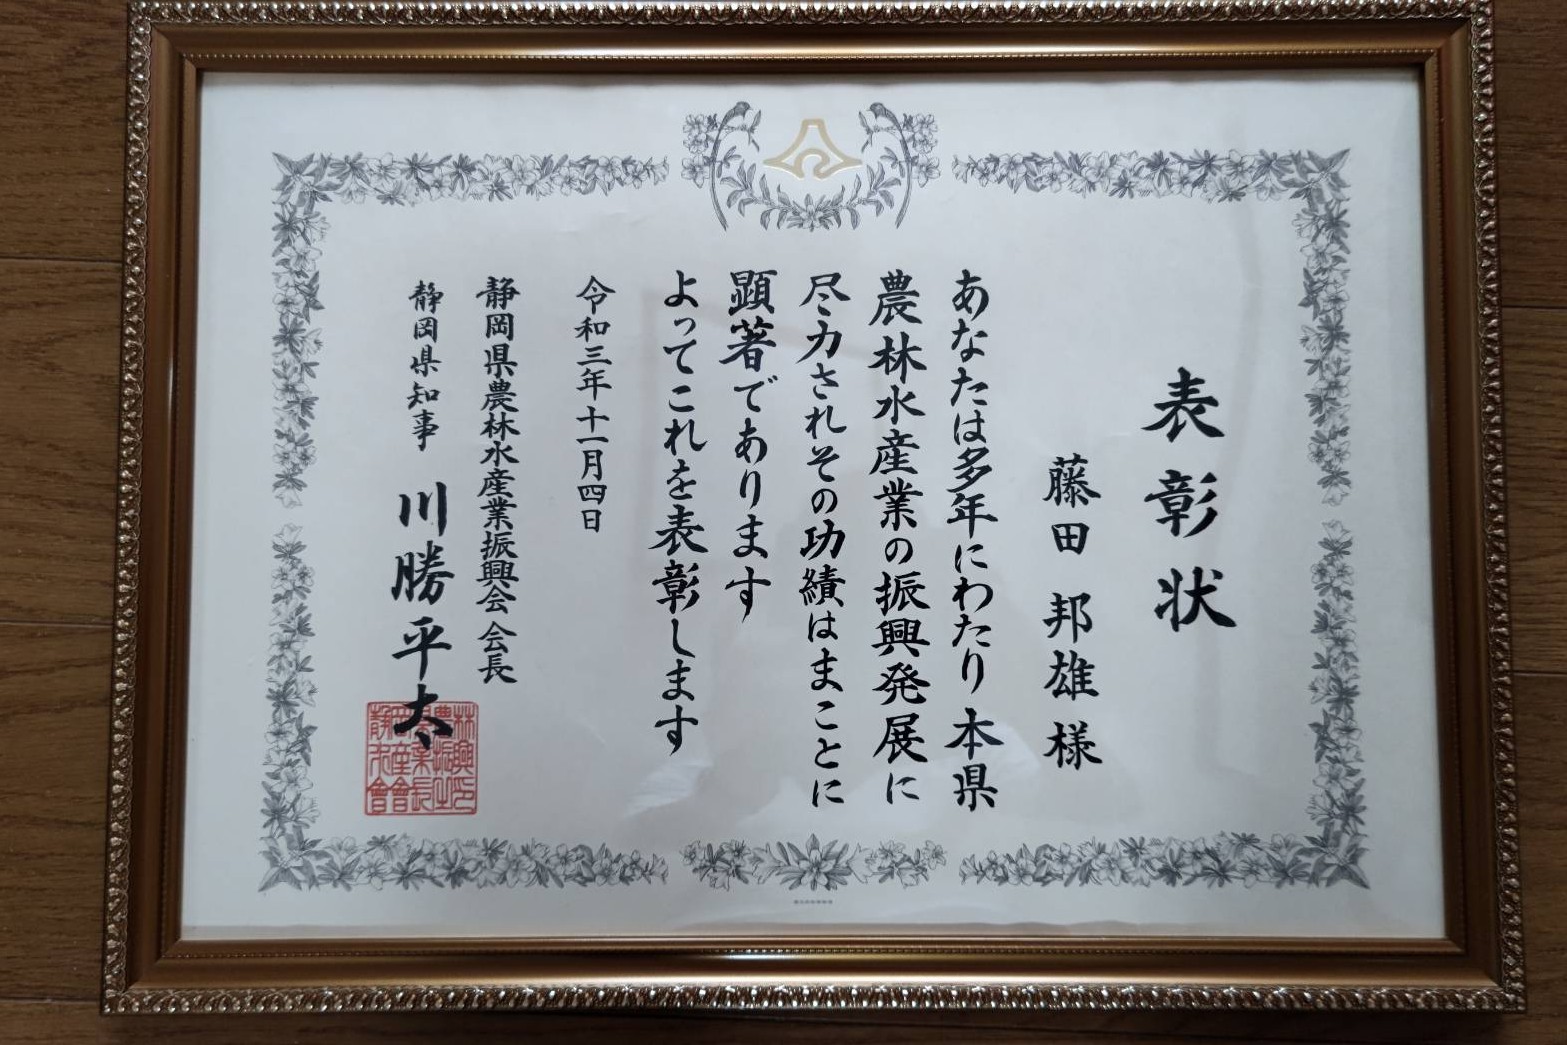 表彰状
藤田 邦雄 様
あなたは多年にわたり本県
農林水産業の振興発展に
尽力されその功績はまことに
顕著であります
よってこれを表彰します
令和三年十一月四日
静岡県農林水産業振興会 会長
静岡県知事 川勝平太